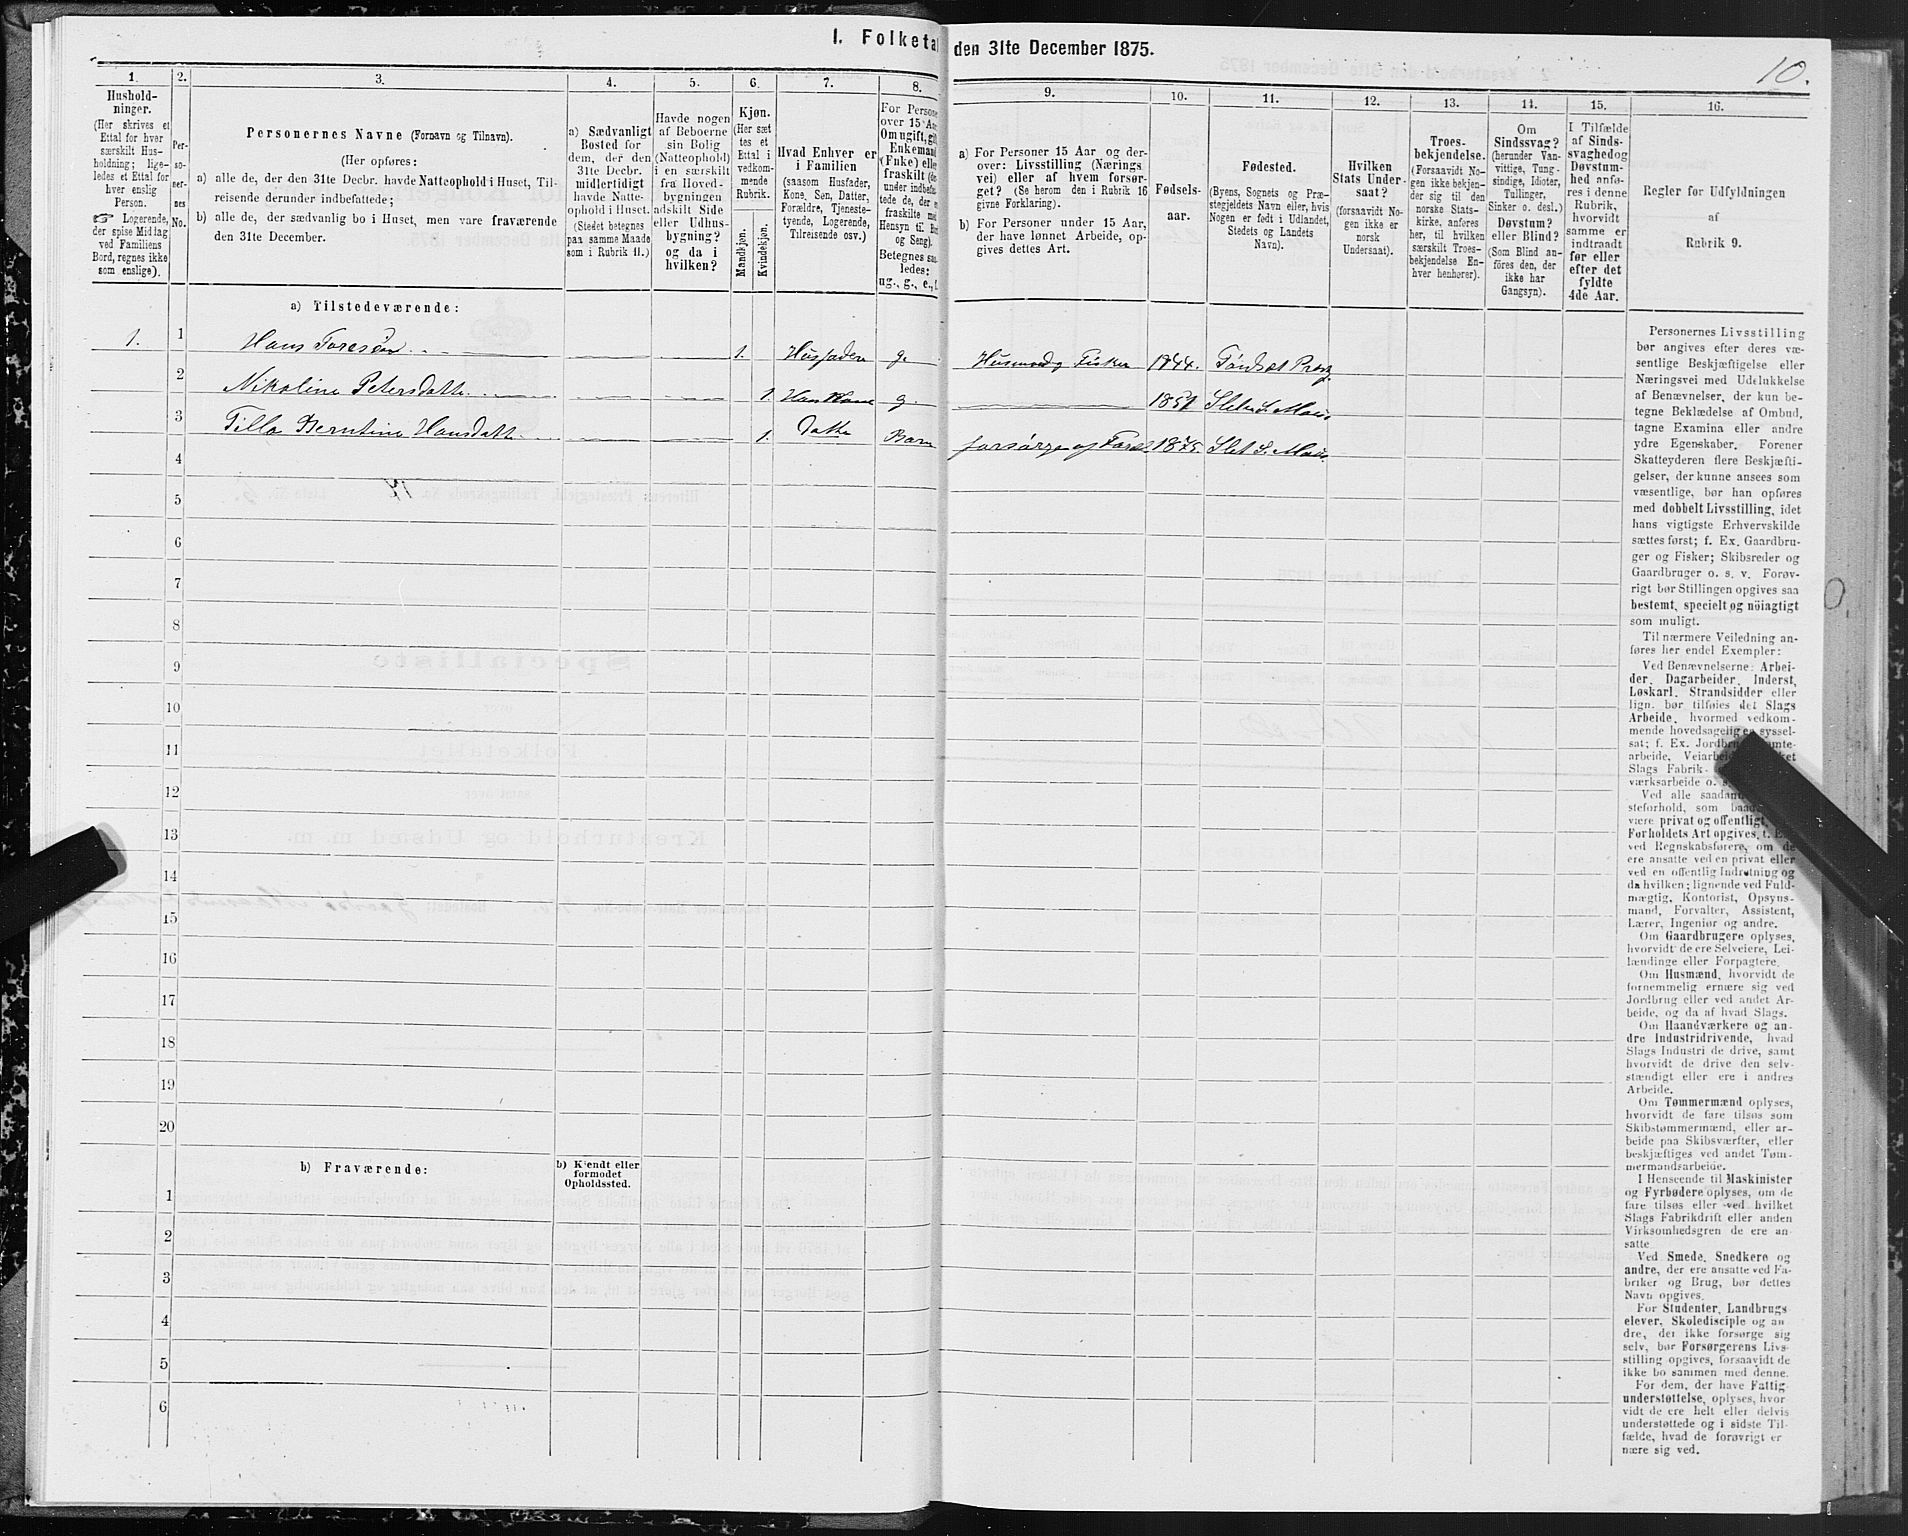 I. Folketal
den 31te December 1875.
10.
1.
2.
3.
4.
5.
6.
7.
8.
9.
10.
11.
12.
13.
14.
15.
16.
Hushold-
ninger.
(Her skrives et
Ettal for hver
særskilt Hus-
holdning; lige-
ledes et Ettal for
hver enslig
Person.
☞ Logerende,
der spise Middag
ved Familiens
Bord, regnes ikke
som enslige).
Per-
so-
ner-
nes
No.
Personernes Navne (Fornavn og Tilnavn).
(Her opføres:
a) alle de, der den 31te Decbr. havde Natteophold i Huset, Til-
reisende derunder indbefattede;
b) alle de, der sædvanlig bo i Huset, men vare fraværende
den 31te December.
a) Sædvanligt
Bosted for
dem, der den
31te Decbr.
midlertidigt
havde Natte-
ophold i Huset.
(Stedet betegnes
paa samme Maade
som i Rubrik 11.)
Havde nogen
af Beboerne
sin Bolig
(Natteophold)
i en særskilt
fra Hoved-
bygningen
adskilt Side
eller Udhus-
bygning?
og da i
hvilken?
Kjøn.
(Her sæt
tes et
Ettal i
vedkom-
mende
Rubrik.
Mandkjøn.
Kvindekjøn.
Hvad Enhver er
i Familien
(saasom Husfader,
Kone, Søn, Datter,
Forældre, Tjeneste-
tyende, Logerende,
Tilreisende osv.)
For Persone
over 15 Aar
Om ugift, gif
Enkemand
(Fnke) elle
fraskilt (de
under indbefat
tede de, der e
fraskilte med
Hensyn til Bo
og Seng).
Betegnes saa-
ledes:
ug., g., e., f.
a) For Personer 15 Aar og der-
over: Livsstilling (Nærings
vei) eller af hvem forsør-
get? (Se herom den i Rubrik 16
givne Forklaring).
b) For Personer under 15 Aar,
der have lønnet Arbeide, op-
gives dettes Art.
Fødsels-
aar.
Fødested.
(Byens, Sognets og Præ-
stegjeldets Navn eller, hvis
Nogen er født i Udlandet,
Stedets og Landets
Navn).
Hvilken
Stats Under-
saat?
(forsaavidt No-
gen ikke er
norsk
Undersaat).
Troes-
bekjendelse.
(Forsaavidt No-
gen ikke bekjen-
der sig til den
norske Stats-
kirke, anføres
her, til hvilken
særskilt Troes-
bekjendelse En-
hver henhører).
Om
Sindssvag?
(herunder Van-
vittige, Tung-
sindige, Idioter,
Tullinger,
Sinker o. desl.)
Døvstum?
eller Blind?
(Som Blind an-
føres den, der
ikke har
Gangsyn).
I Tilfælde
af Sinds-
svaghed og
Døvstum-
hed anfø-
res i denne
Rubrik,
hvorvidt
samme er
indtraadt
før eller
efter det
fyldte
4de Aar.
Regler for Udfyldningen
af
Rubrik 9.
a) Tilstedeværende:
1. 1 Hans Toresen 1. Husfader g. Husmand og Fisker 1844. Tøndset Præstg.
2 Nikoline Petersdatter 1. Hans Kone g. 1851
3 Tilla Berntine Hansdatter 1. Datter Barn forsørges af Fader 1875.
4
5
6
7
8
9
10
11
12
13
14
15
16
17
18
19
20
b) Fraværende:
b) Kjendt eller
formodet
Opholdssted.
1
2
3
4
5
6
Personernes Livsstilling
bør angives efter deres væ-
sentlige Beskjæftigelse eller
Næringsvei med Udelukkelse
af Benævnelser, der kun be-
tegne Beklædelse af Ombud,
tagne Examina eller andre
ydre Egenskaber. Forener
Skatteyderen flere Beskjæfti-
gelser, der kunne ansees som
væsentlige, bør han opføres
med dobbelt Livsstilling, idet
hans vigtigste Erhvervskilde
sættes først; f. Ex. Gaardbru-
ger og Fisker; Skibsreder og
Gaardbruger o. s. v. Forøv-
rigt bør Stillingen opgives saa
bestemt, specielt og nöiagtigt
som muligt.
Til nærmere Veiledning an-
føres her endel Exempler:
Ved Benævnelserne: Arbei-
der, Dagarbeider, Inderst,
Løskarl, Strandsidder eller
lign. bør tilføies det Slags
Arbeide, hvormed vedkom-
mende hovedsagelig er syssel-
sat; f. Ex. Jordbr
arbeide, Veiarbei
Slags Fabrik-
værksarbeide o. s.
Ved alle saadan
steforhold, som baad
være privat og offentligt,
Forholdets Art opgives, t. E
ved Regnskabsførere, om de
ere ansatte ved en privat eller
ved en offentlig Indretning og
da hvilken; lignende ved Fuld-
mægtig, Kontorist, Opsyns-
mand, Forvalter, Assistent,
Lærer, Ingeniør og andre.
Om Gaardbrugere oplyses,
hvorvidt de ere Selveiere, Lei-
lændinge eller Forpagtere.
Om Husmænd, hvorvidt de
fornemmelig ernære sig ved
Jordbrug eller ved andet Ar-
beide, og da af hvad Slags.
Om Haandværkere og an-
dre Industridrivende, hvad
Slags Industri de drive, samt
hvorvidt de drive den selv-
stændigt eller ere i andres
Arbeide.
Om Tømmermænd oplyses,
hvorvidt de fare tilsøs som
Skibstømmermænd, eller ar-
beide paa Skibsværfter, eller
beskjæftiges ved andet Tøm-
mermandsarbeide.
I Henseende til Maskinister
og Fyrbødere oplyses, om de
fare tilsøs eller ved hvilket
Slags Fabrikdrift eller anden
Virksomhedsgren de ere an-
satte
Ved Smede, Snedkere og
andre, der ere ansatte ved Fa-
briker og Brug, bør dettes
Navn opgives.
For Studenter, Landbrugs
elever, Skoledisciple og an
dre, der ikke forsørge sig
selv, bør Forsørgerens Livs-
stilling opgives, forsaavidt de
ikke bo sammen med denne.
For dem, der have Fattig
understøttelse, oplyses, hvor
vidt de ere helt eller delvis
understøttede og i sidste Til-
fælde, hvad de forøvrigt er
nære sig ved.